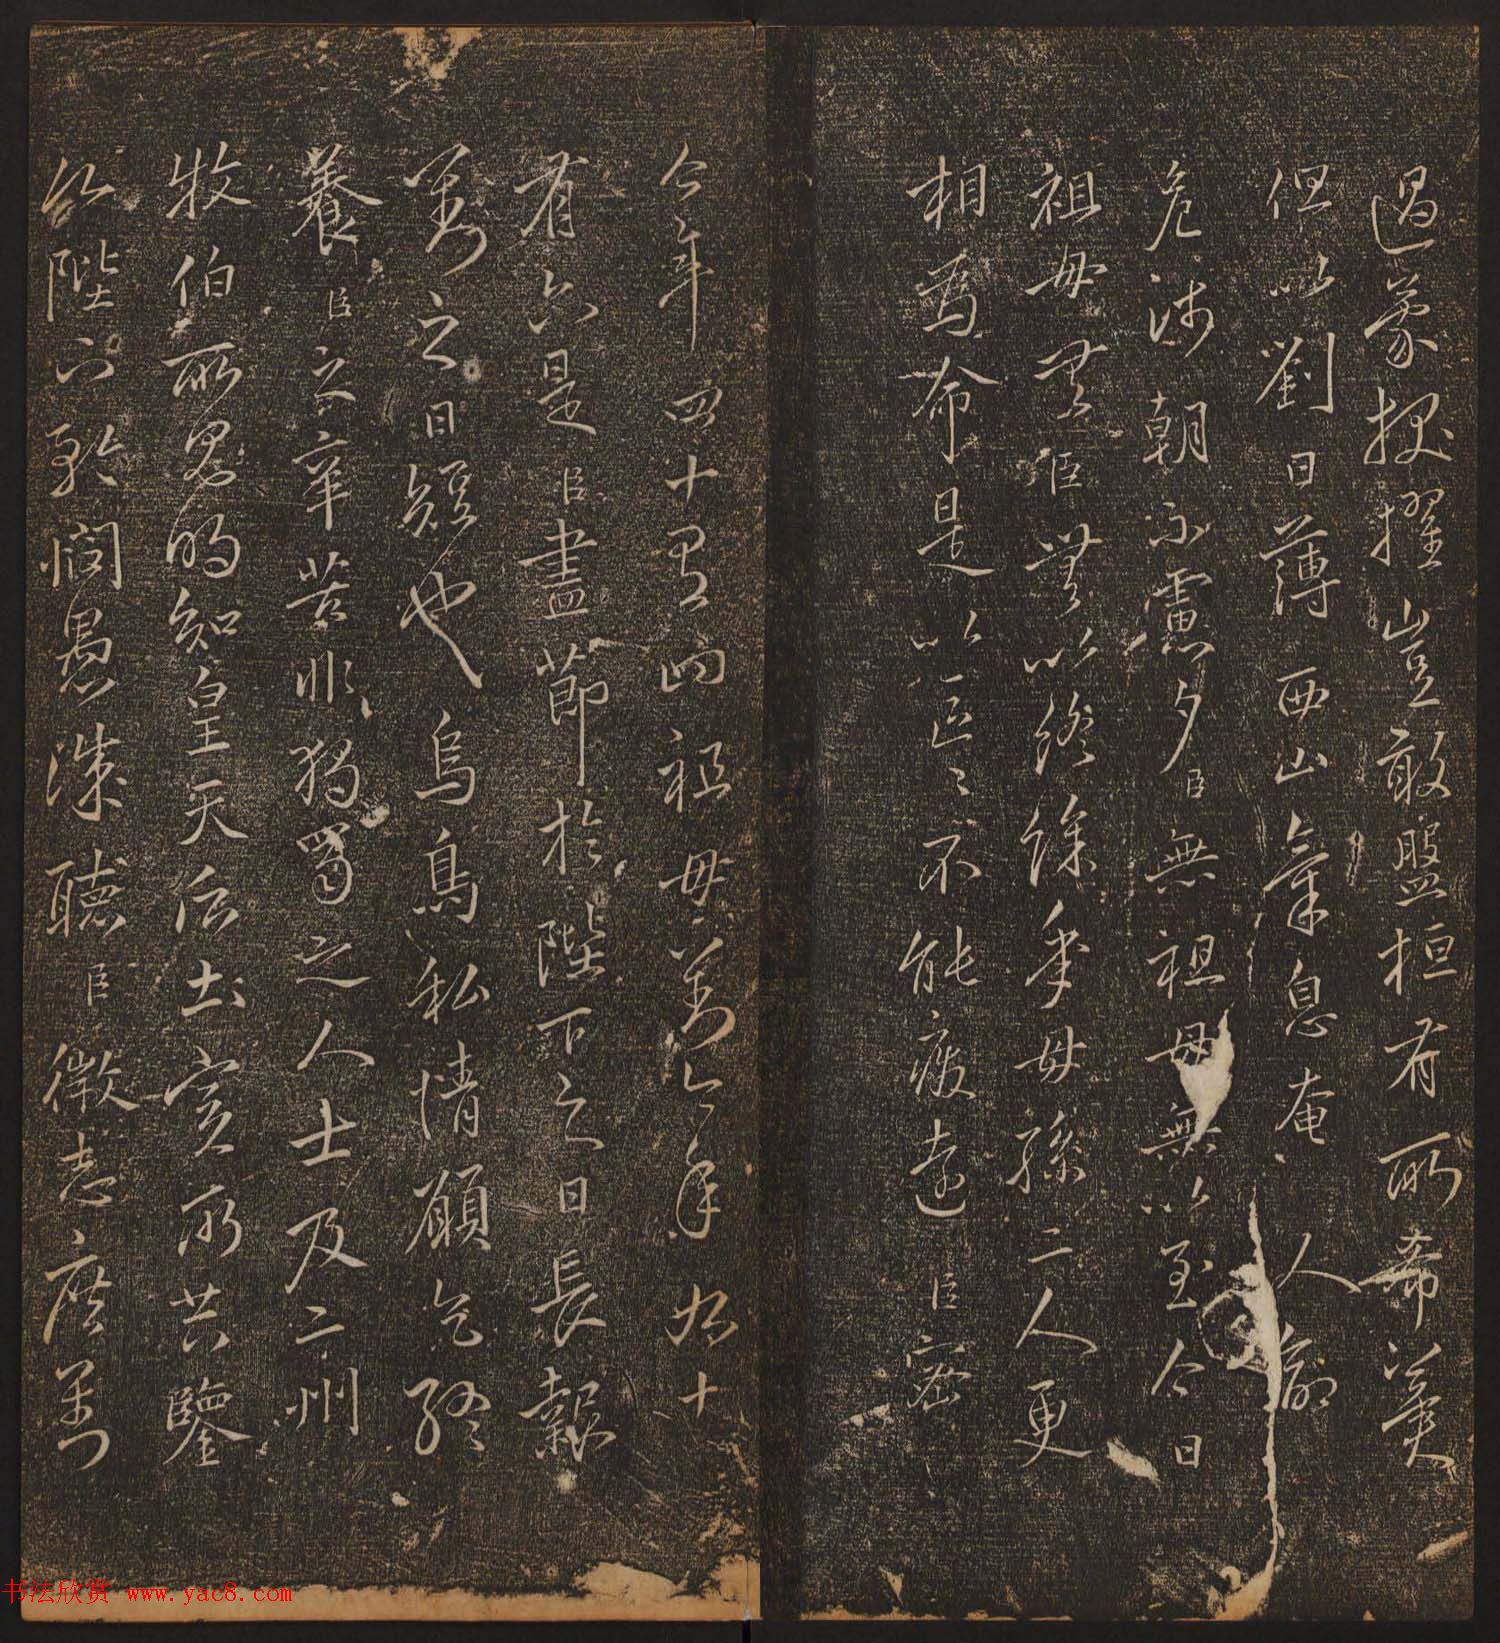 過蒙拔擢豈敢盤桓有所希冀
但以劉日薄西山氣息奄〻人命
危淺朝不慮夕臣無祖母無以至今日
祖母無臣無以終餘年母孫二人更
相為命是以區〻不能廢遠臣密
今年四十有四祖母劉今年九十
有六是臣盡節於陛下之日長報
劉之日短也烏鳥私情願乞終
養臣之辛苦非獨蜀之人士及二州
牧伯所見明知皇天后土實所共鑒
願陛下矜愍愚誠聽臣微志庶劉
书法欣赏 www.yac8.com